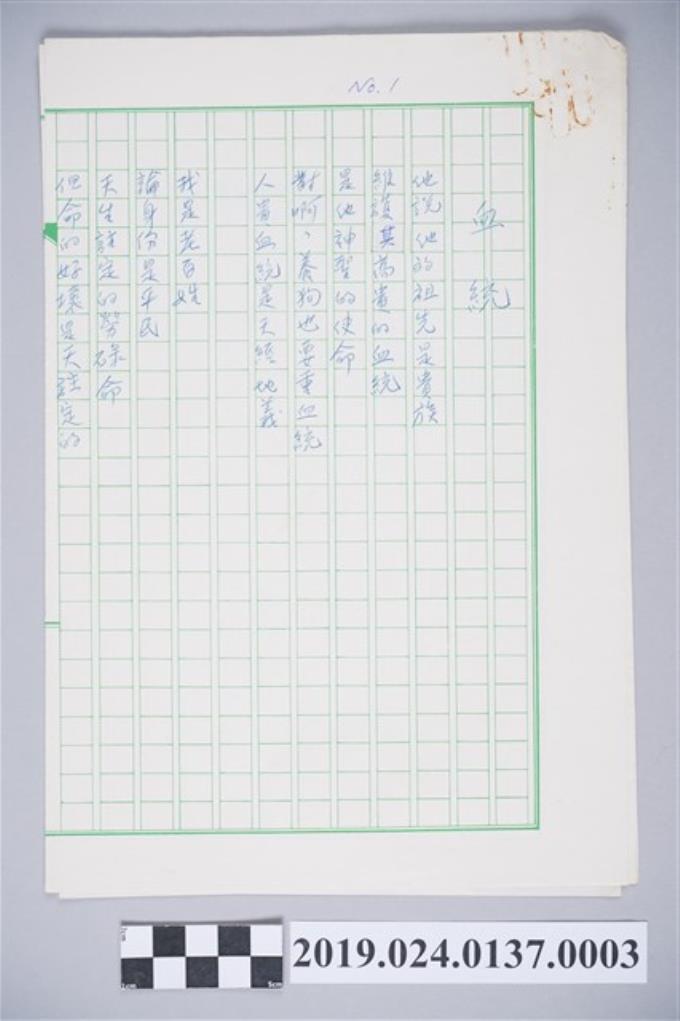 No. 1
血統
他說他的祖先是貴族
維護其高貴的血統
是他神聖的使命
對啊、養狗也要重血統
人貴血統是天經地義
我是老百姓
論身份是平民
天生註定的勞碌命
但命的好壞是天註定的
2019.024.0137.0003
1cm
5cm